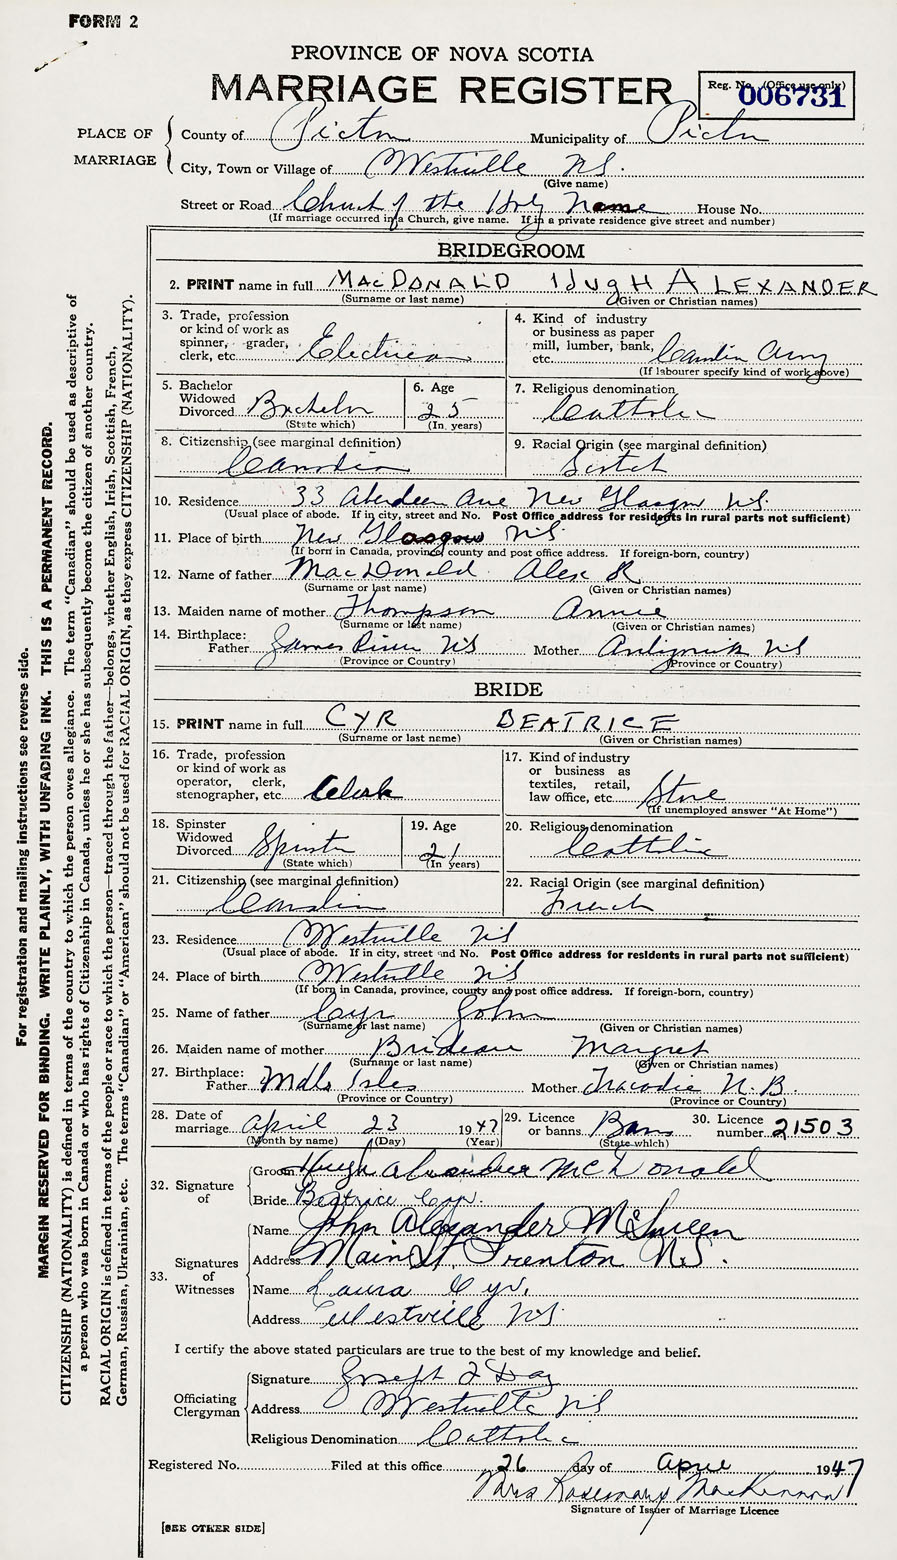 FORM 2
PROVINCE OF NOVA SCOTIA
MARRIAGE REGISTER
Reg. No. (Office use only)
006731
PLACE OF MARRIAGE
County of Pictou Municipality of Pictou
City, Town or Village of Westville NS.
(Give name)
Street or Road Church of the Holy Name House No.
(If marriage occurred in a Church, give name. If in a private residence give street and number)
BRIDEGROOM
2. PRINT name in full MACDONALD HUGH ALEXANDER
(Surname or last name) (Given or Christian names)
3. Trade, profession or kind of work as spinner, grader, clerk, etc. Electrician
4. Kind of industry or business as paper mill, lumber, bank, etc. Canadian Army
(If labourer specify kind of work above)
5. Bachelor Widowed Divorced Bachelor
(State which)
6. Age 25
(In years)
7. Religious denomination Catholic
8. Citizenship (see marginal definition)
Canadian
9. Racial Origin (see marginal definition)
Scotch
10. Residence 33 Aberdeen Ave New Glasgow NS
(Usual place of abode. If in city, street and No. Post Office address for residents in rural parts not sufficient)
11. Place of birth New Glasgow NS
(If born in Canada, province, county and post office address. If foreign-born, country)
12. Name of father MacDonald Alex R
(Surname or last name) (Given or Christian names)
13. Maiden name of mother Thompson Annie
(Surname or last name) (Given or Christian names)
14. Birthplace:
Father James River NS Mother Antigonish NS
(Province or Country) (Province or Country)
BRIDE
15. PRINT name in full CYR BEATRICE
(Surname or last name) (Given or Christian names)
16. Trade, profession or kind of work as operator, clerk, stenographer, etc. Clerk
17. Kind of industry or business as textiles, retail, law office, etc. Store
(If unemployed answer "At Home")
18. Spinster Widowed Divorced Spinster
(State which)
19. Age 21
(In years)
20. Religious denomination
Catholic
21. Citizenship (see marginal definition)
Canadian
22. Racial Origin (see marginal definition)
French
23. Residence Westville NS
(Usual place of abode. If in city, street and No. Post Office address for residents in rural parts not sufficient)
24. Place of birth Westville NS
(If born in Canada, province, county and post office address. If foreign-born, country)
25. Name of father Cyr John
(Surname or last name) (Given or Christian names)
26. Maiden name of mother Brideau Margret
(Surname or last name) (Given or Christian names)
27. Birthplace:
Father Mdln Isles Mother Tracadie N.B.
(Province or Country) (Province or Country)
28. Date of marriage April 23 1947
(Month by name) (Day) (Year)
29. Licence or banns Banns
(State which)
30. Licence number 21503
32. Signature of
Groom Hugh Alexander McDonald
Bride Beatrice Cyr.
33. Signatures of Witnesses
Name John Alexander McSween
Address Main St. Trenton N.S.
Name Laura Cyr.
Address Westville NS
I certify the above stated particulars are true to the best of my knowledge and belief.
Officiating Clergyman
Signature Joseph Day
Address Westville NS
Religious Denomination Catholic
Registered No. Filed at this office 26 day of April 1947
Mrs Rosemary MacKinnon
Signature of Issuer of Marriage Licence
[SEE OTHER SIDE]
For registration and mailing instructions see reverse side.
MARGIN RESERVED FOR BINDING. WRITE PLAINLY, WITH UNFADING INK. THIS IS A PERMANENT RECORD.
CITIZENSHIP (NATIONALITY) is defined in terms of the country to which the person owes allegiance. The term "Canadian" should be used as descriptive of
a person who was born in Canada or who has rights of Citizenship in Canada, unless he or she has subsequently become the citizen of another country.
RACIAL ORIGIN is defined in terms of the people or race to which the person—traced through the father—belongs, whether English, Irish, Scottish, French,
German, Russian, Ukrainian, etc. The terms "Canadian" or "American" should not be used for RACIAL ORIGIN, as they express CITIZENSHIP (NATIONALITY).